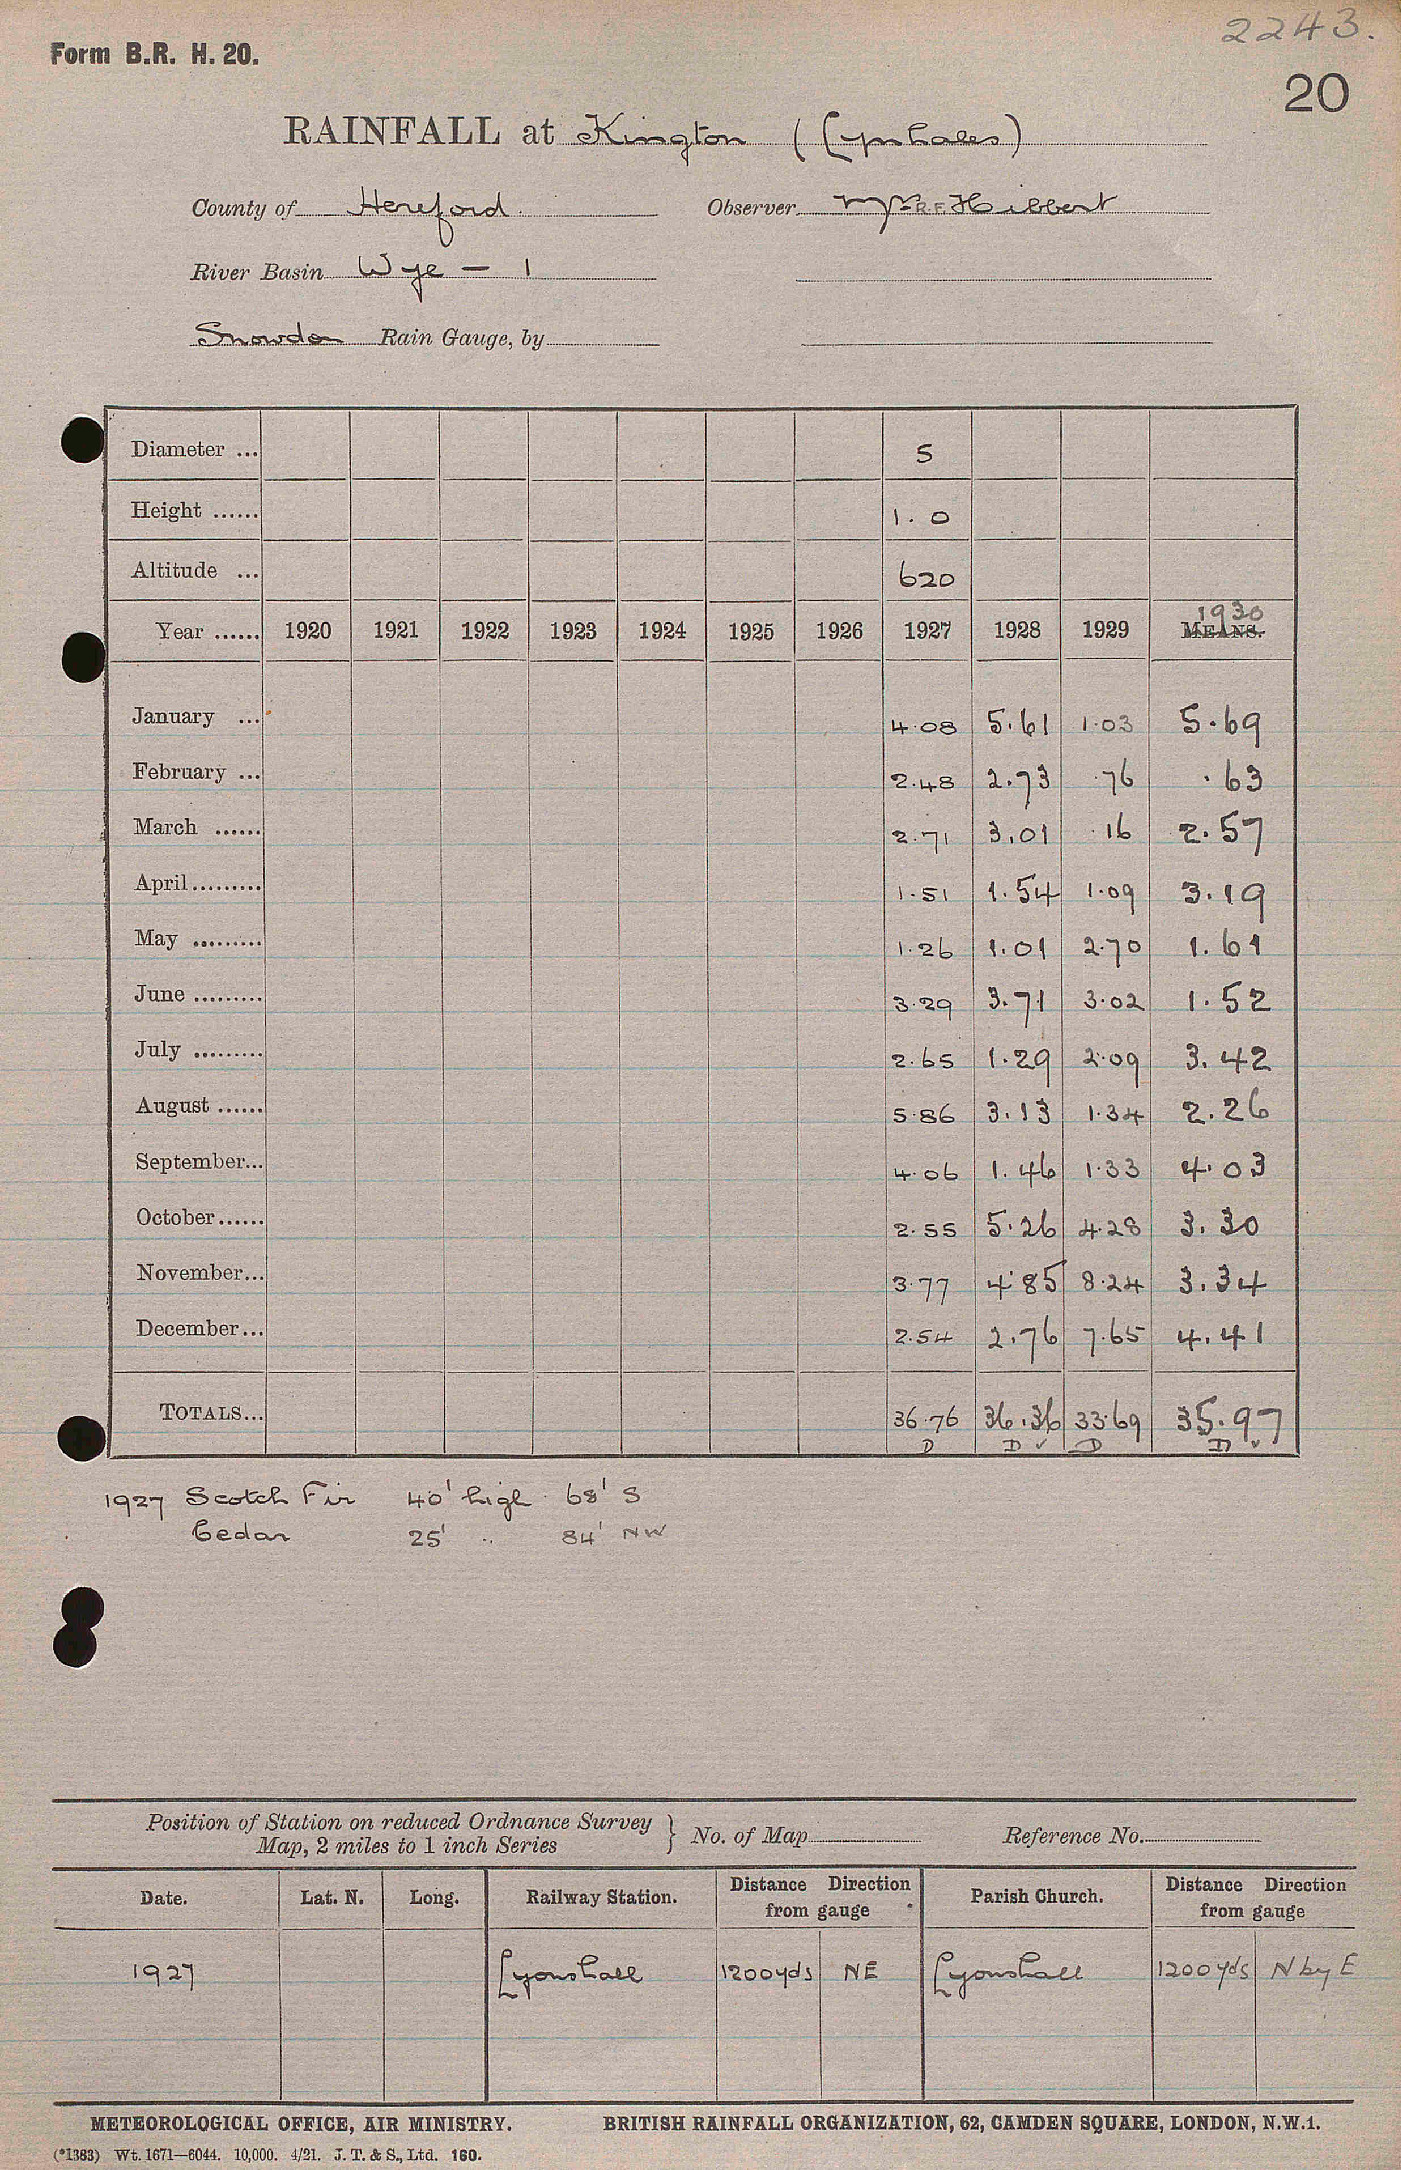 2243.
Form B.R. H. 20.
20
RAINFALL at Kington (Lynhales)
County of Hereford. Observer Mrs R.F. Hibbert
River Basin Wye — 1
Snowdon Rain Gauge, by
Diameter ... 5
Height ...... 1.0
Altitude ... 620
1930
Year ...... 1920 1921 1922 1923 1924 1925 1926 1927 1928 1929 MEANS.
January ... 4.08 5.61 1.03 5.69
February ... 2.48 2.73 .76 .63
March ...... 2.71 3.01 .16 2.57
April......... 1.51 1.54 1.09 3.19
May ......... 1.26 1.01 2.70 1.61
June ......... 3.29 3.71 3.02 1.52
July ......... 2.65 1.29 2.09 3.42
August ...... 5.86 3.13 1.34 2.26
September... 4.06 1.46 1.33 4.03
October...... 2.55 5.26 4.28 3.30
November... 3.77 4.85 8.24 3.34
December... 2.54 2.76 7.65 4.41
TOTALS... 36.76 36.36 33.69 35.97
D D ✓ D D ✓
1927 Scotch Fir 40' high 68' S
Cedar 25' .. 84' NW
Position of Station on reduced Ordnance Survey
Map, 2 miles to 1 inch Series } No. of Map Reference No.
Date. Lat. N. Long. Railway Station. Distance Direction from gauge Parish Church. Distance Direction from gauge
1927 Lyonshall 1200 yds NE Lyonshall 1200 yds N by E
METEOROLOGICAL OFFICE, AIR MINISTRY. BRITISH RAINFALL ORGANIZATION, 62, CAMDEN SQUARE, LONDON, N.W.1.
(*1383) Wt. 1671—6044. 10,000. 4/21. J. T. & S., Ltd. 160.